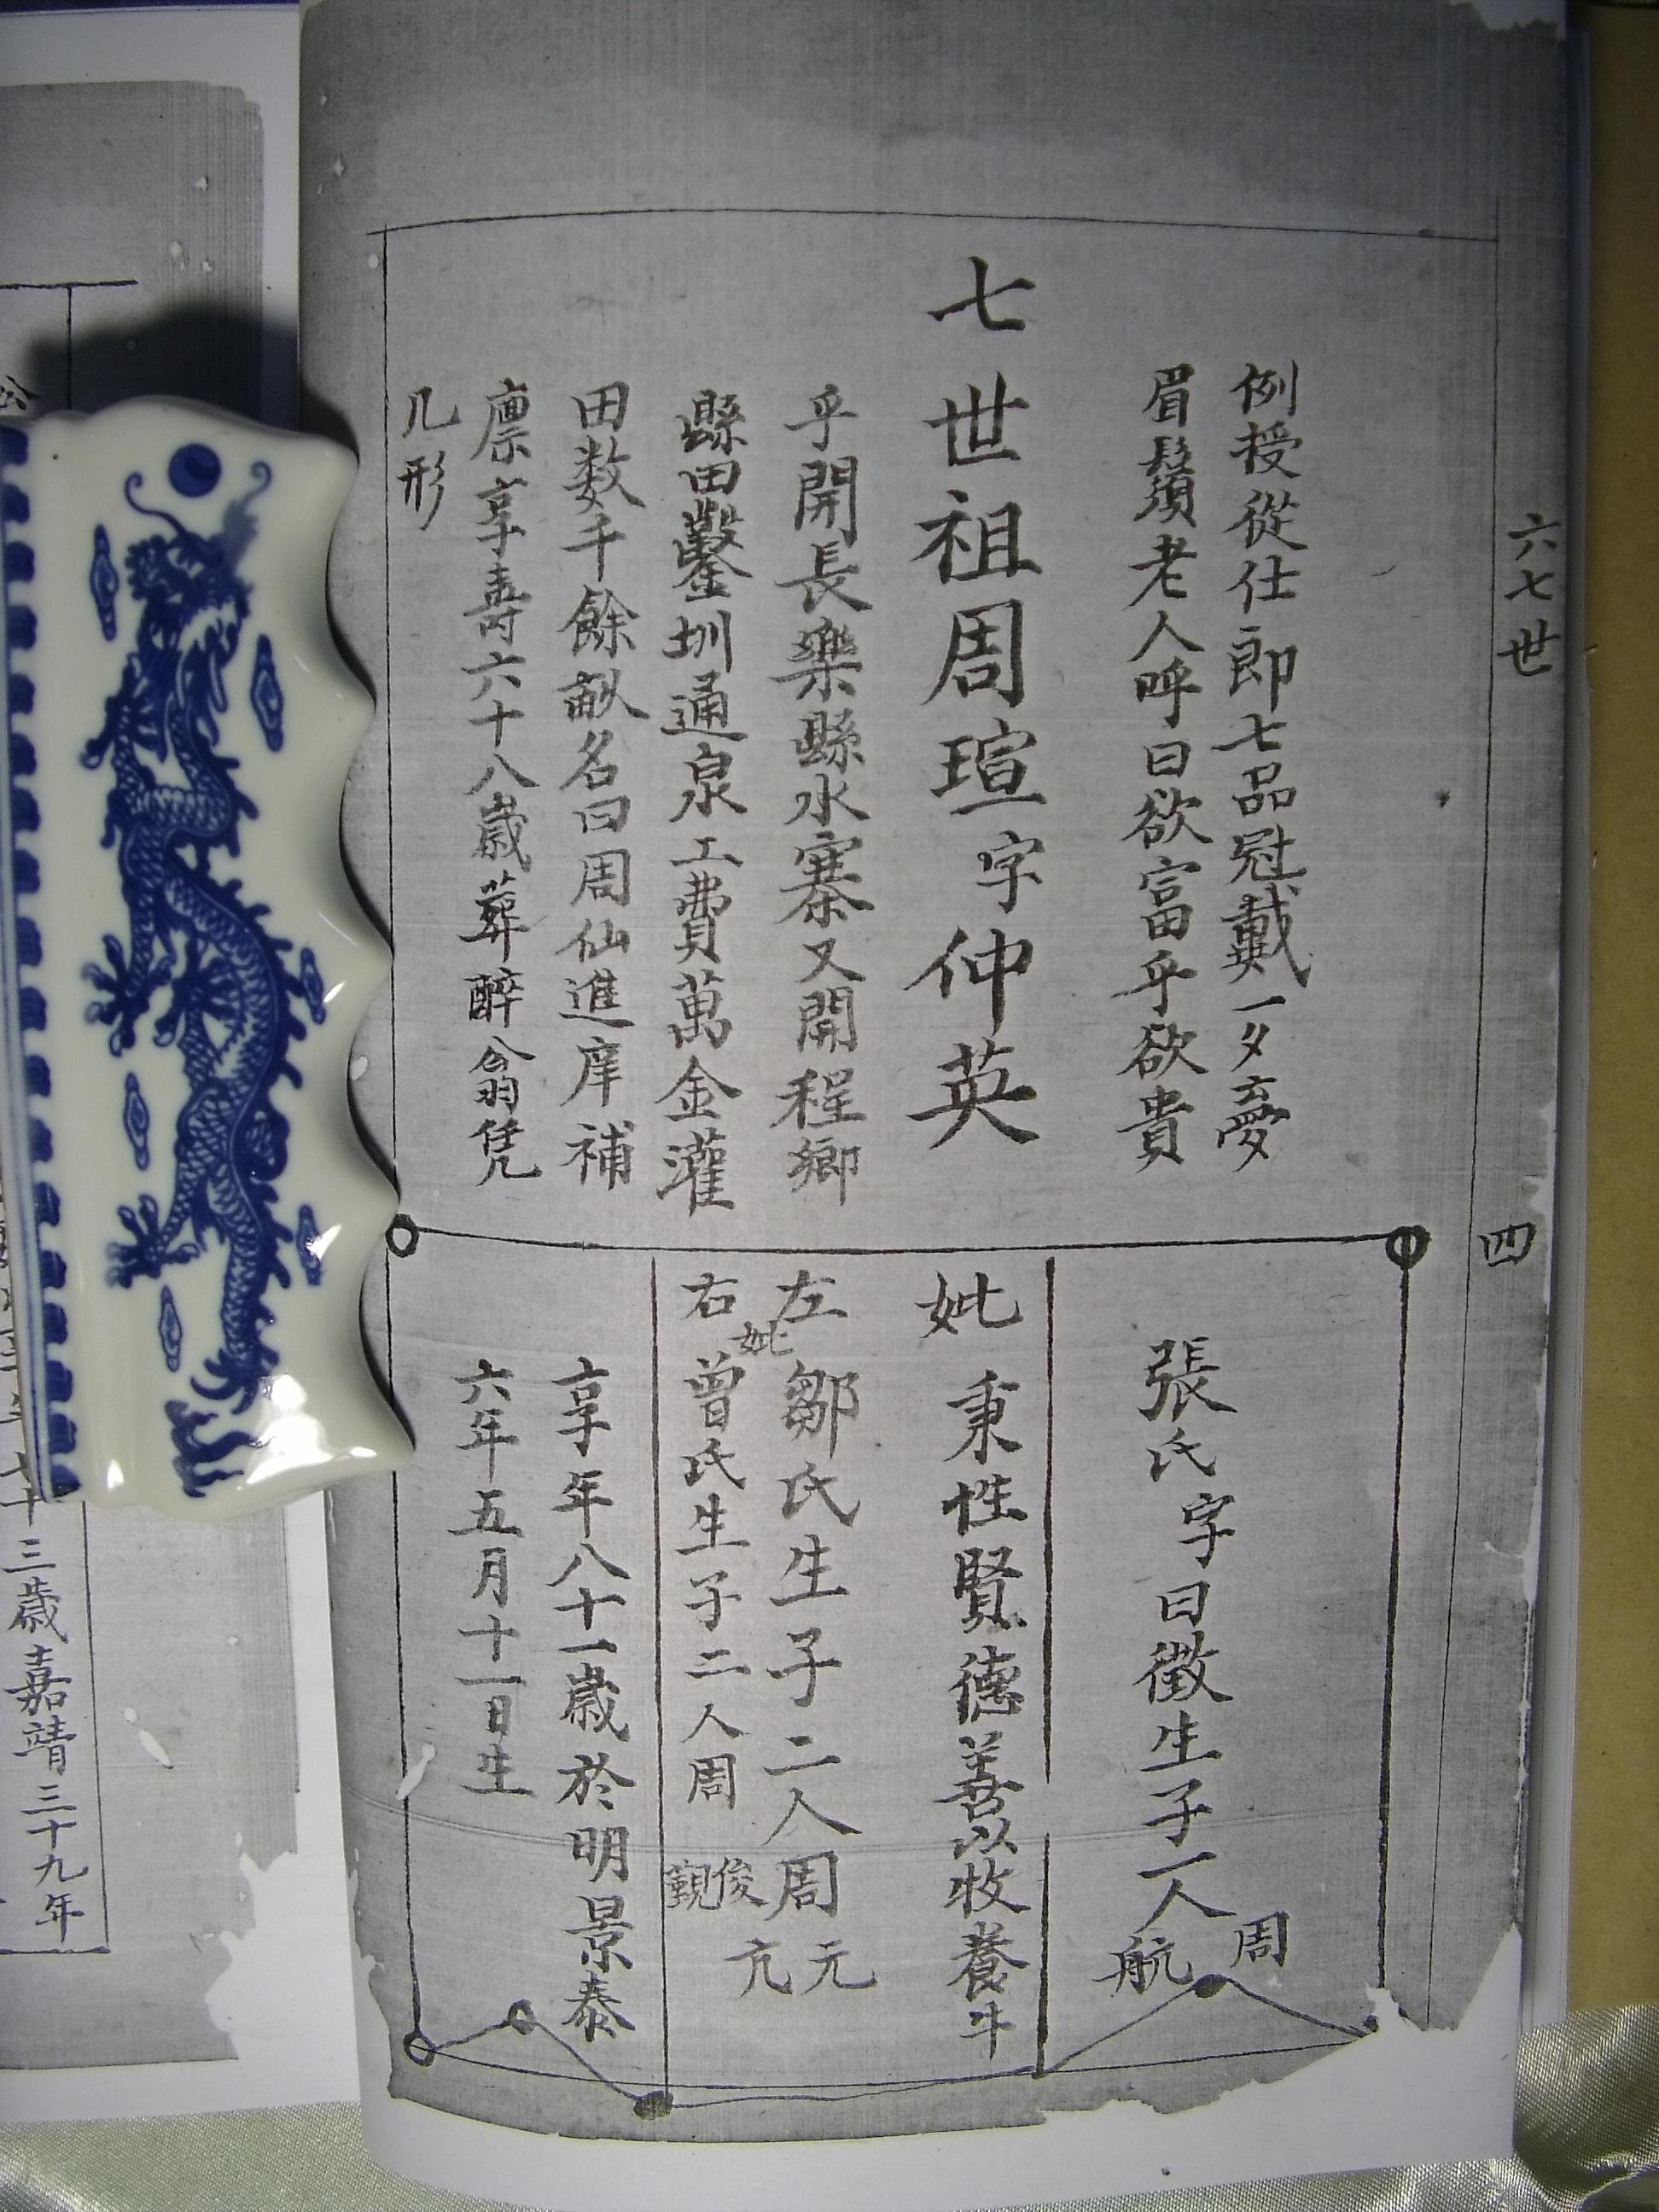 六七世
四
例授從仕郎七品冠戴一夕夢
眉鬚老人呼曰欲富乎欲貴
七世祖周瑄字仲英
乎開長樂縣水寨又開程鄉
縣田鑿圳通泉工費萬金灌
田数千餘畝名曰周仙進庠補
廪享壽六十八歲葬醉翁凭
几形
張氏字曰徵生子一人周航
妣秉性賢德善以牧養牛
左妣鄒氏生子二人周元亢
右曾氏生子二人周俊觀
享年八十一歲於明景泰
六年五月十一日生
十三歲嘉靖三十九年